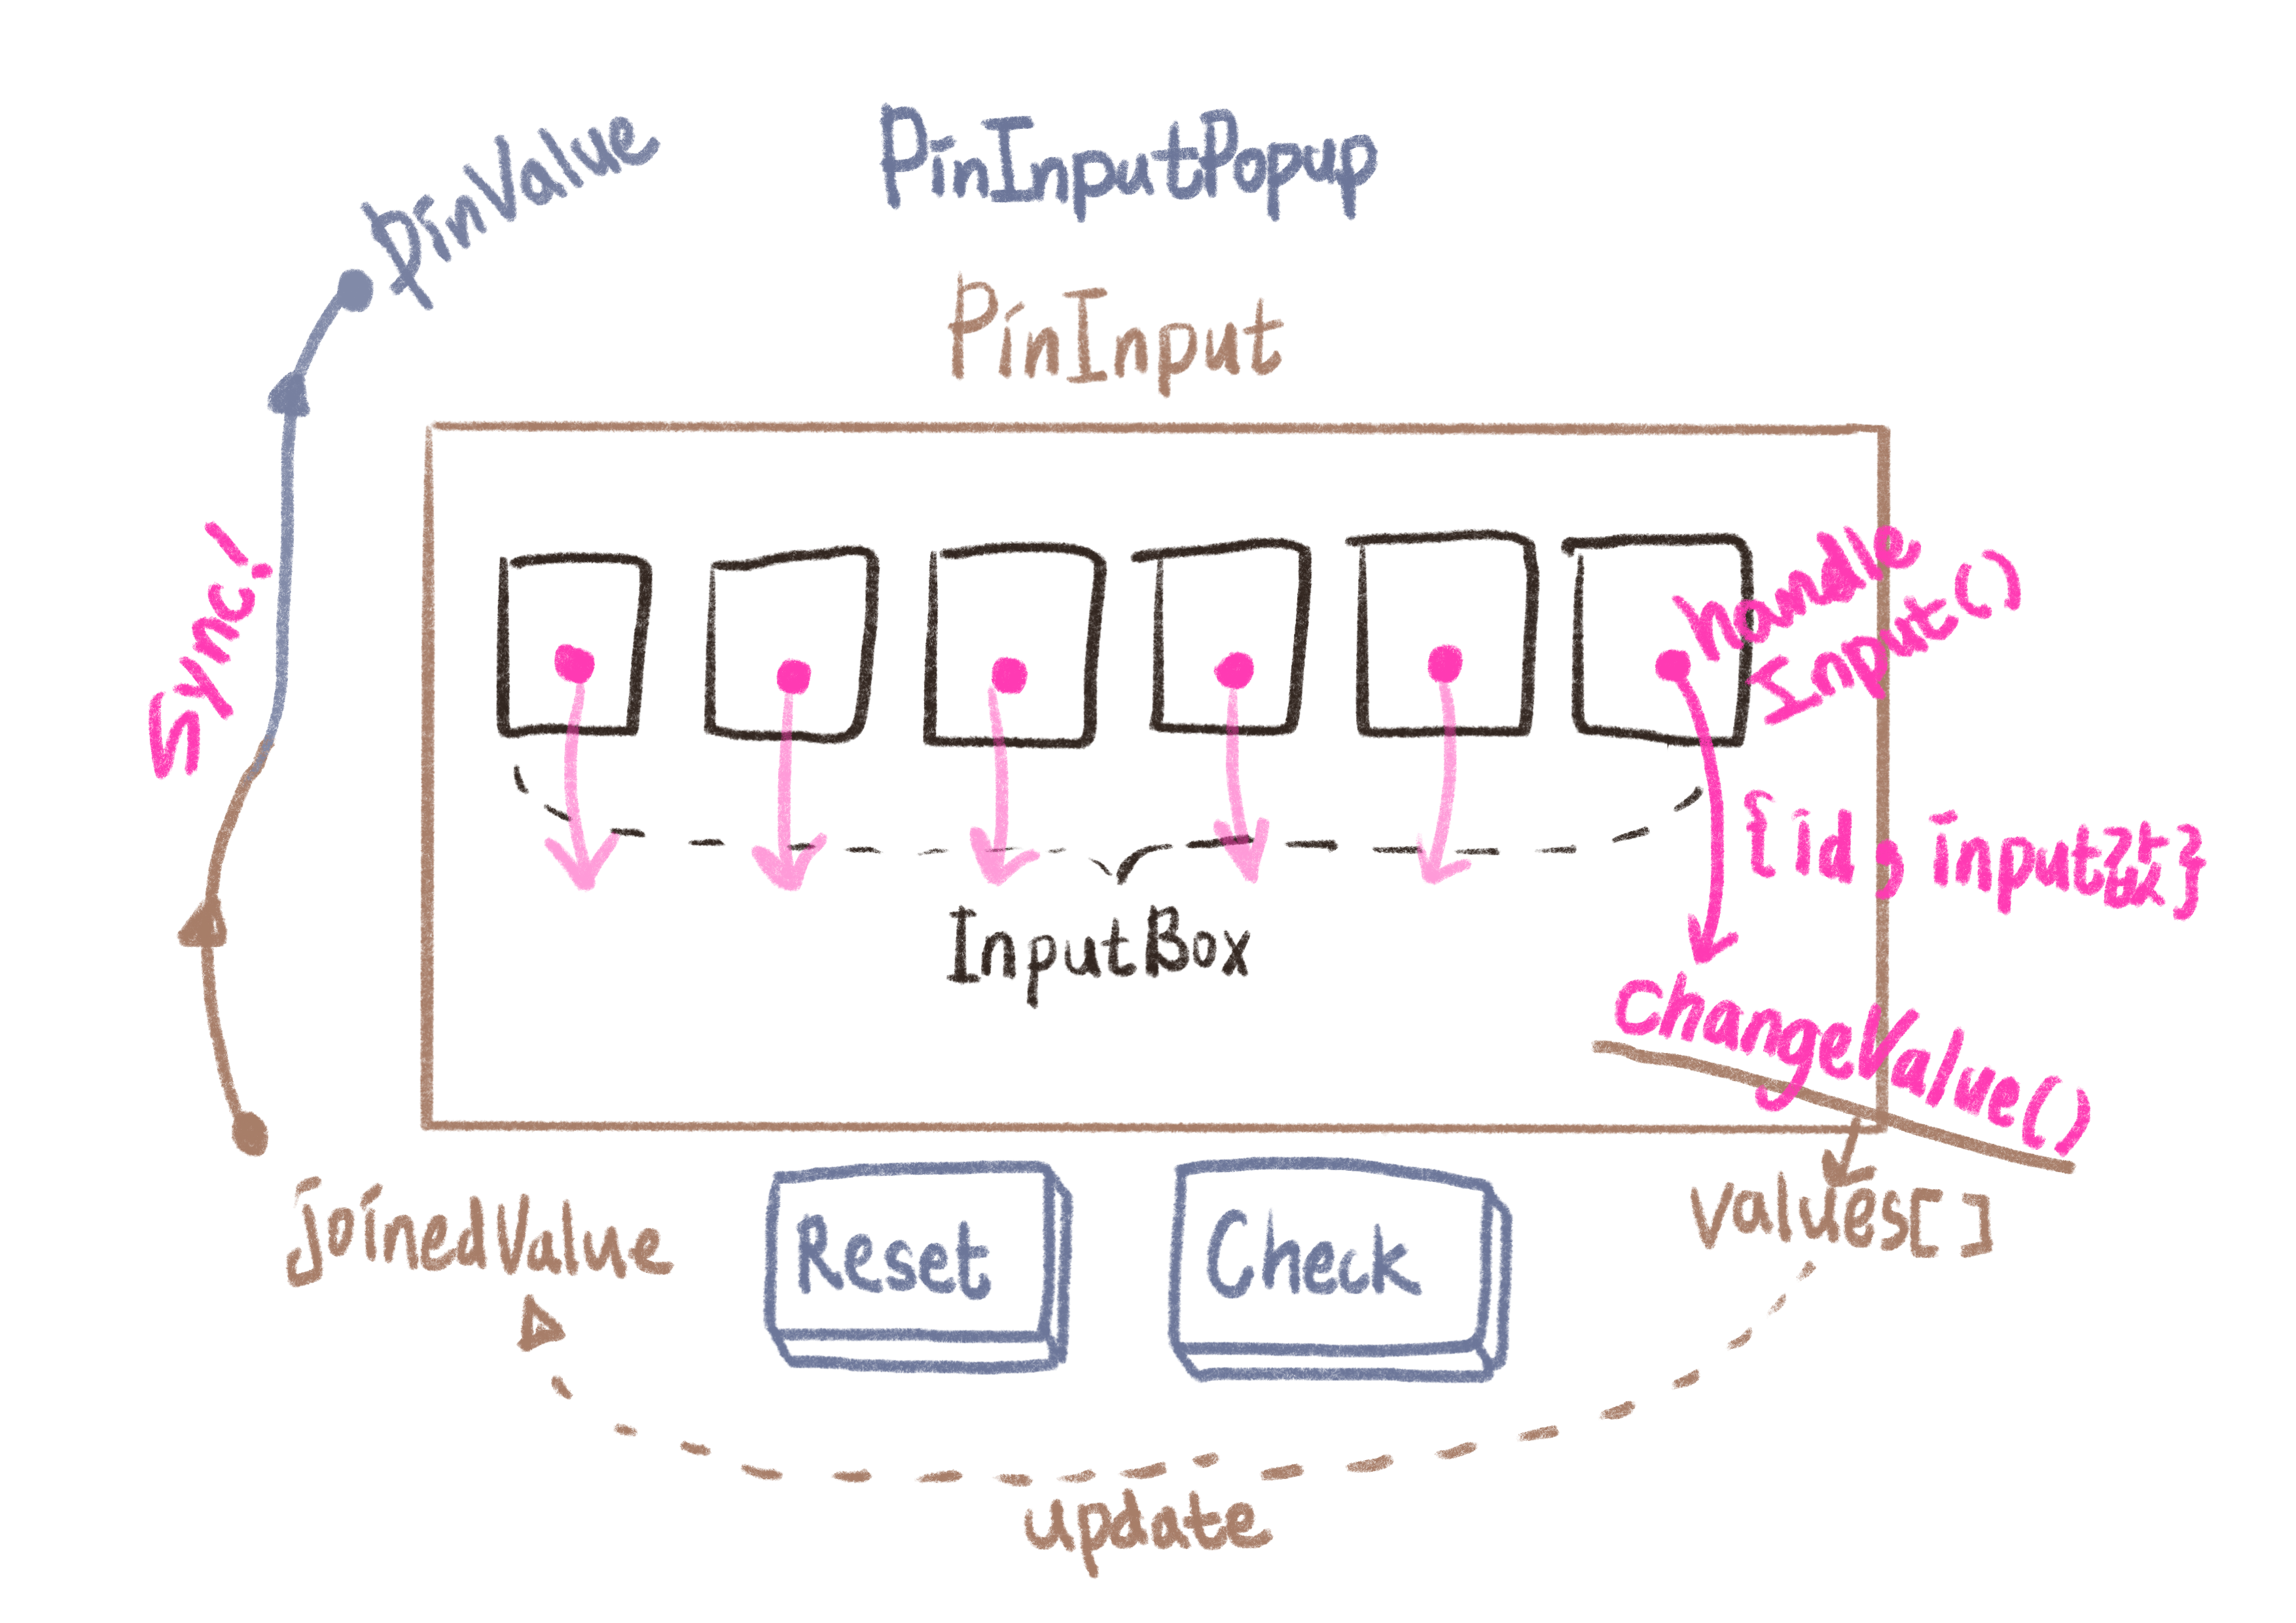 PinInputPopup
pinValue
PinInput
Sync!
handle
Input()
{id, input값}
InputBox
changeValue()
joinedValue
Reset
Check
values[]
update